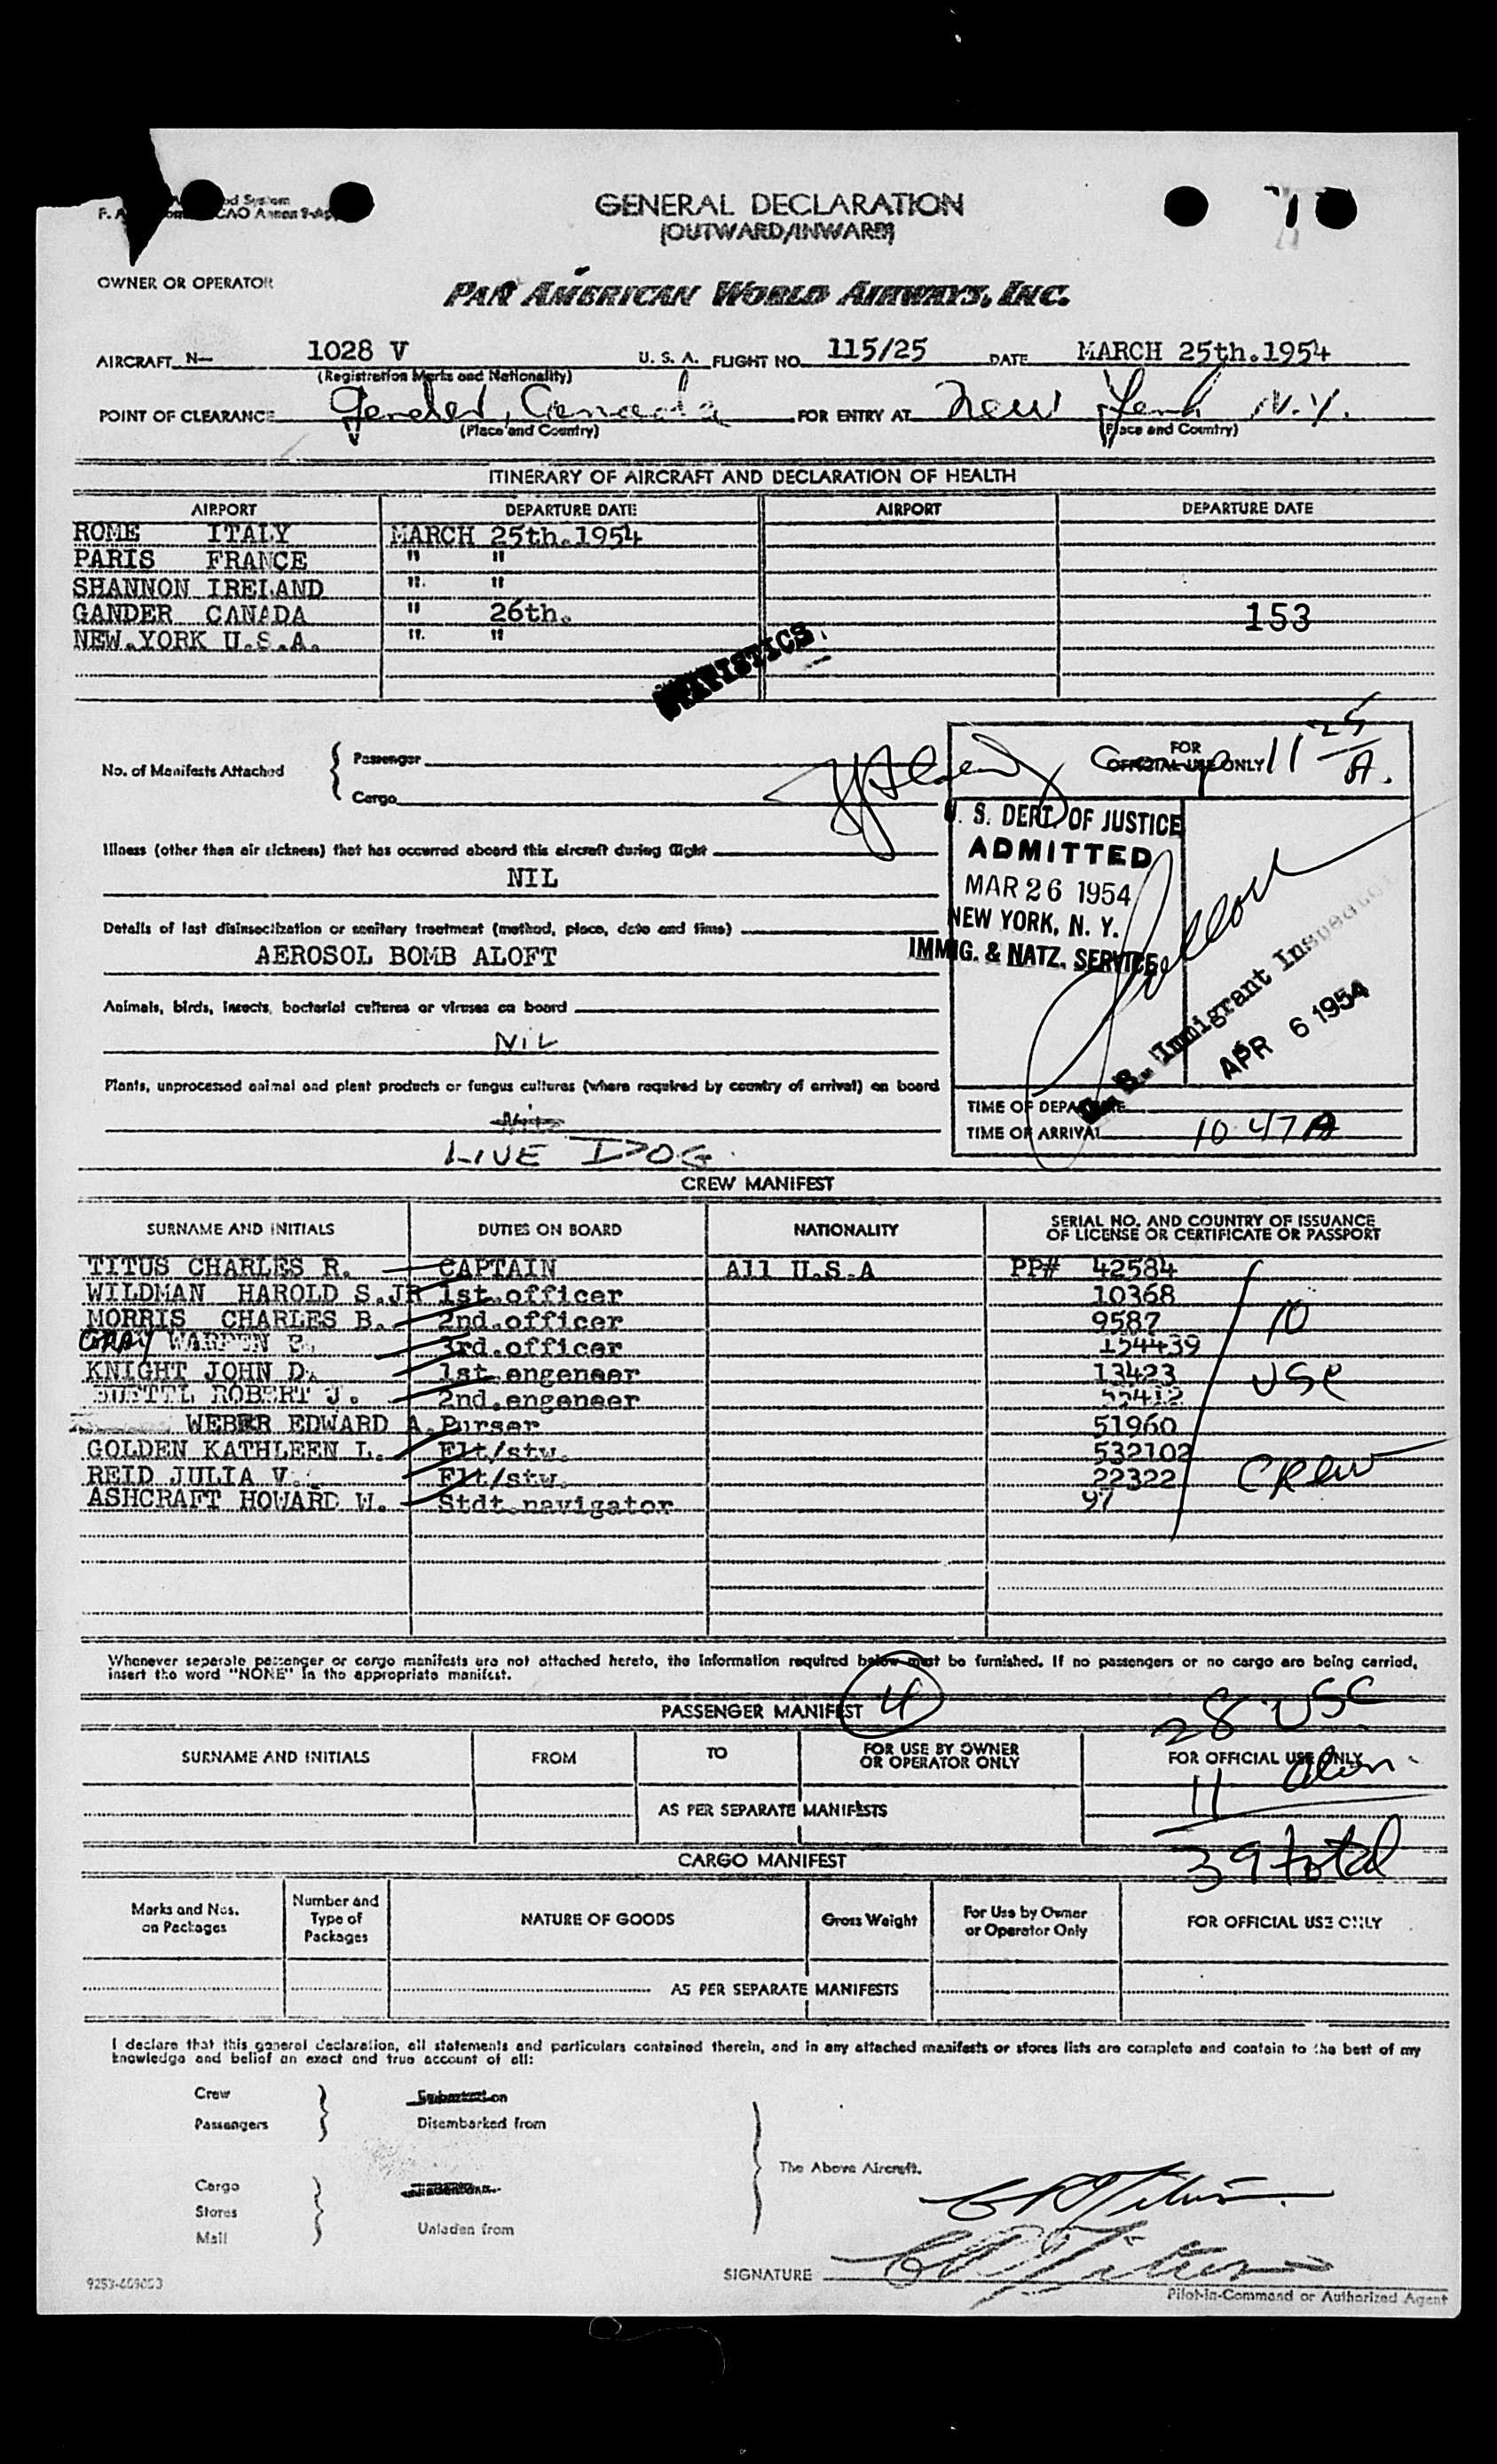 od System
F. A CAO Annex 9-Ap
GENERAL DECLARATION
(OUTWARD/INWARD)
OWNER OR OPERATOR
PAN AMERICAN WORLD AIRWAYS, INC.
AIRCRAFT N— 1028 V U. S. A. FLIGHT NO. 115/25 DATE MARCH 25th.1954
(Registration Marks and Nationality)
POINT OF CLEARANCE Gander, Canada FOR ENTRY AT New York N.Y.
(Place and Country) (Place and Country)
ITINERARY OF AIRCRAFT AND DECLARATION OF HEALTH
AIRPORT DEPARTURE DATE AIRPORT DEPARTURE DATE
ROME ITALY MARCH 25th.1954
PARIS FRANCE " "
SHANNON IRELAND ". "
GANDER CANADA " 26th. 153
NEW.YORK U.S.A. ". "
STATISTICS
No. of Manifests Attached { Passenger
Cargo
FOR OFFICIAL USE ONLY
11 25/A.
Illness (other than air sickness) that has occurred aboard this aircraft during flight
NIL
U. S. DEPT. OF JUSTICE
ADMITTED
MAR 26 1954
NEW YORK, N. Y.
IMMIG. & NATZ. SERVICE
Details of last disinsectization or sanitary treatment (method, place, date and time)
AEROSOL BOMB ALOFT
Animals, birds, insects, bacterial cultures or viruses on board
NiL
U. S. Immigrant Inspector
APR 6 1954
Plants, unprocessed animal and plant products or fungus cultures (where required by country of arrival) on board
Nil
LIVE DOG.
TIME OF DEPARTURE
TIME OF ARRIVAL 10 47A
CREW MANIFEST
SURNAME AND INITIALS DUTIES ON BOARD NATIONALITY SERIAL NO. AND COUNTRY OF ISSUANCE OF LICENSE OR CERTIFICATE OR PASSPORT
TITUS CHARLES R. CAPTAIN All U.S.A PP# 42584
WILDMAN HAROLD S.JR 1st.officer 10368
MORRIS CHARLES B. 2nd.officer 9587
WARREN 3rd.officer 154439
KNIGHT JOHN D. 1st.engeneer 13423
ROBERT J. 2nd.engeneer
WEBER EDWARD A. Purser 51960
GOLDEN KATHLEEN L. Flt/stw. 532102
REID JULIA V. Flt/stw. 22322
ASHCRAFT HOWARD W. Stdt.navigator 97
10
USC
CREW
Whenever separate passenger or cargo manifests are not attached hereto, the information required below must be furnished. If no passengers or no cargo are being carried,
insert the word "NONE" in the appropriate manifest.
PASSENGER MANIFEST 4
28 USC
SURNAME AND INITIALS FROM TO FOR USE BY OWNER OR OPERATOR ONLY FOR OFFICIAL USE ONLY
11 alien
AS PER SEPARATE MANIFESTS
39 total
CARGO MANIFEST
Marks and Nos. on Packages Number and Type of Packages NATURE OF GOODS Gross Weight For Use by Owner or Operator Only FOR OFFICIAL USE ONLY
AS PER SEPARATE MANIFESTS
I declare that this general declaration, all statements and particulars contained therein, and in any attached manifests or stores lists are complete and contain to the best of my
knowledge and belief an exact and true account of all:
Crew
Passengers Disembarked from
The Above Aircraft.
Cargo
Stores
Mail Unladen from
C R Titus
SIGNATURE C R Titus
Pilot-in-Command or Authorized Agent